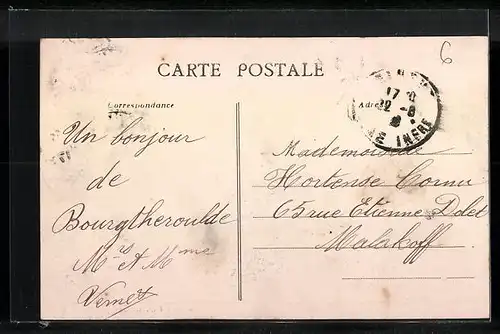 6
CARTE POSTALE
Correspondance
Adresse
17
22-8
INFRE
Un bonjour
de
Bourgtheroulde
Mrs et Mme
Vernet
Mademoiselle
Hortense Cornu
65 rue Etienne Dolet
Malakoff